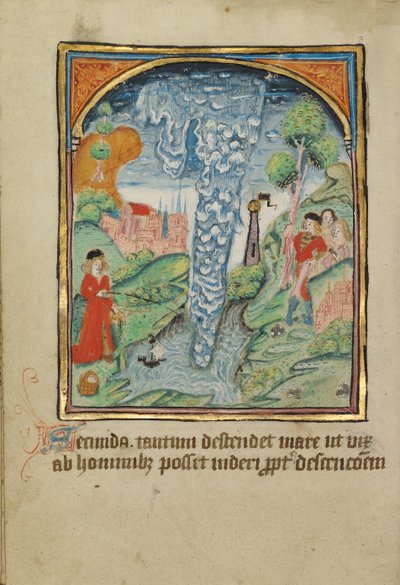 Secunda. tantum descendet mare ut vix
ab hominibꝫ possit uideri ꝓpt' descencōem